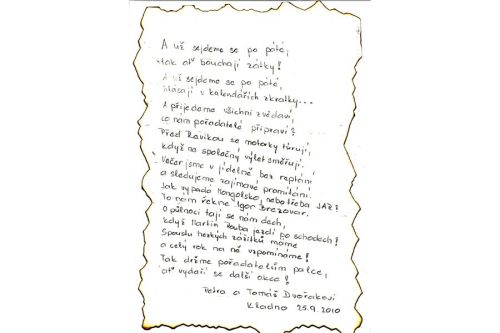 A už sejdeme se po páté,
tak ať bouchají zátky!
A už sejdeme se po páté,
hlásají v kalendářích zkratky...
A přijedeme všichni zvědaví,
co nám pořadatelé připraví?
Před Ravikou se motorky túrují,
když na společný výlet směřují.
Večer jsme v jídelně bez reptání
a sledujeme zajímavé promítání.
Jak vypadá Mongolsko, nebo třeba JAR?
To nám řekne Igor Brezovar.
O půlnoci tají se nám dech,
když Martin Rouba jezdí po schodech!
Spoustu hezkých zážitků máme
a celý rok na ně vzpomínáme!
Tak držme pořadatelům palce,
ať vydaří se další akce!
Petra a Tomáš Dvořákovi
Kladno 25.9.2010